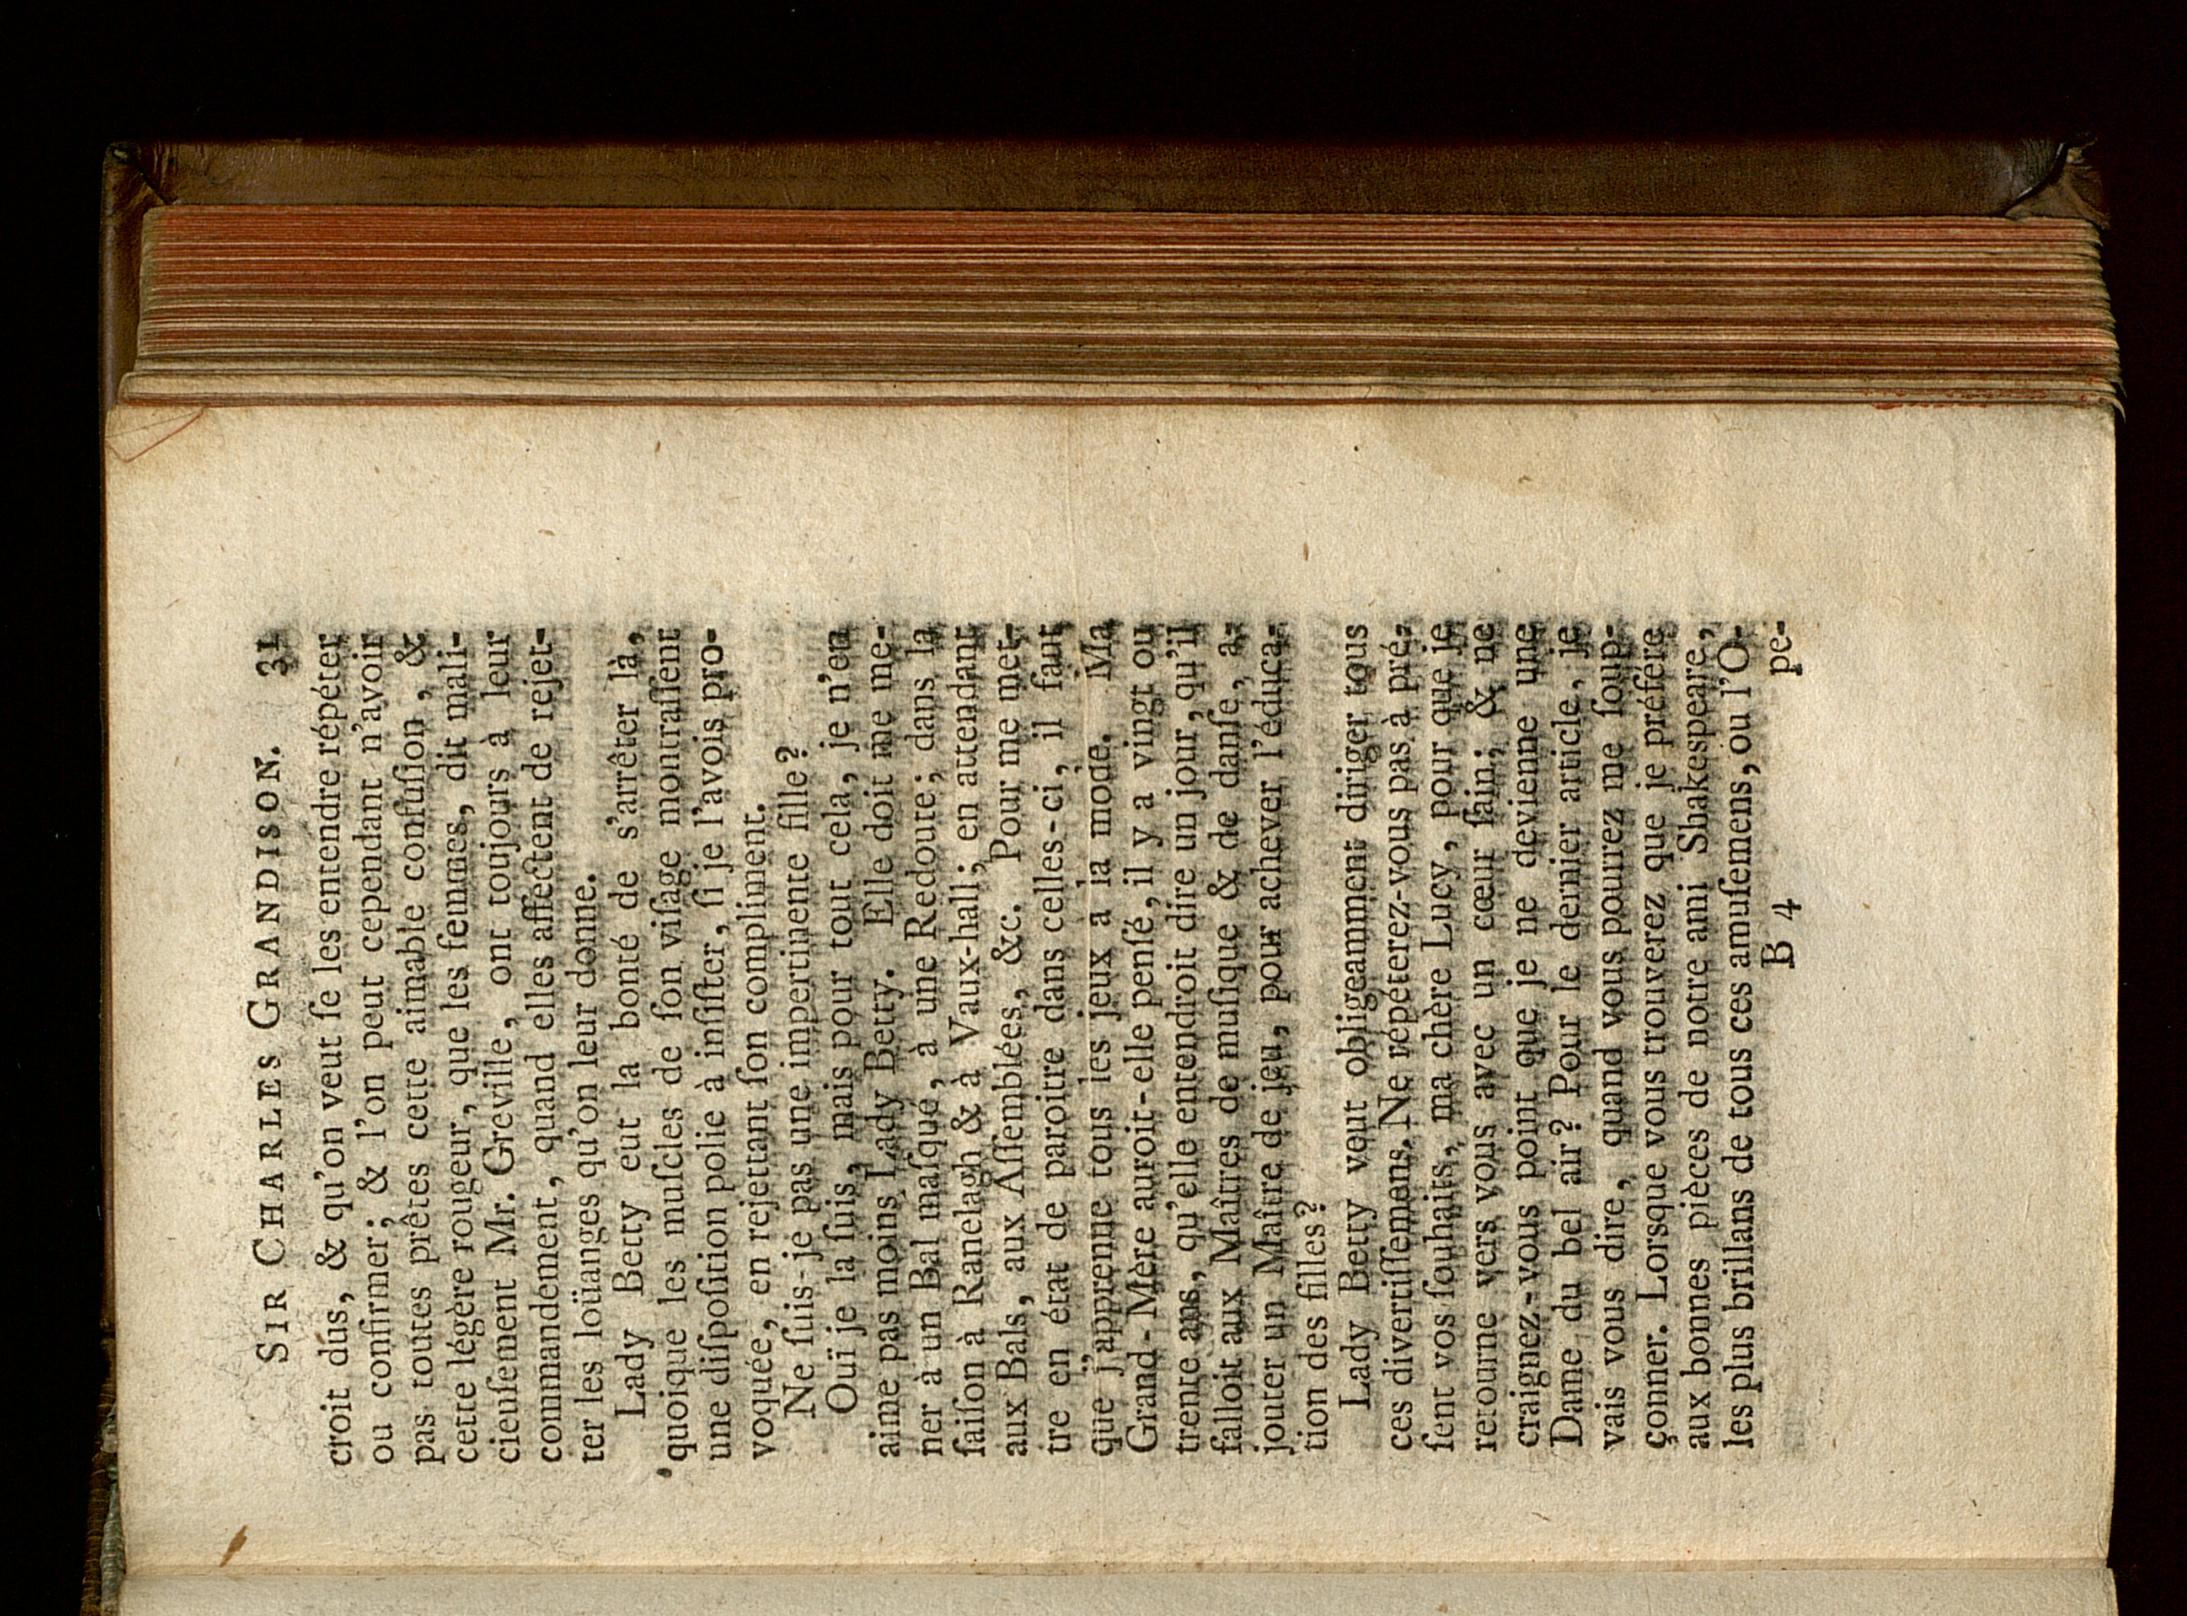 SIR CHARLES GRANDISON. 31
croit dûs, & qu'on veut ſe les entendre répéter
ou confirmer; & l'on peut cependant n'avoir
pas toutes prêtes cette aimable confuſion, &
cette légère rougeur, que les femmes, dit mali-
cieuſement Mr. Greville, ont toujours à leur
commandement, quand elles affectent de rejet-
ter les loüanges qu'on leur donne.
Lady Betty eut la bonté de s'arrêter là,
quoique les muſcles de ſon viſage montraſſent
une diſpoſition polie à inſiſter, ſi je l'avois pro-
voquée, en rejettant ſon compliment.
Ne ſuis-je pas une impertinente fille?
Ouï je la ſuis, mais pour tout cela, je n'en
aime pas moins Lady Betty. Elle doit me me-
ner à un Bal maſqué, à une Redoute; dans la
ſaiſon à Ranelagh & à Vaux-hall; en attendant
aux Bals, aux Aſſemblées, &c. Pour me met-
tre en état de paroitre dans celles-ci, il faut
que j'apprenne tous les jeux a la mode. Ma
Grand-Mère auroit-elle penſé, il y a vingt ou
trente ans, qu'elle entendroit dire un jour, qu'il
falloit aux Maîtres de muſique & de danſe, a-
jouter un Maître de jeu, pour achever l'éduca-
tion des filles?
Lady Betty veut obligeamment diriger tous
ces divertiſſemans. Ne répéterez-vous pas à pré-
ſent vos ſouhaits, ma chère Lucy, pour que je
retourne vers vous avec un cœur ſain; & ne
craignez-vous point que je ne devienne une
Dame du bel air? Pour le dernier article, je
vais vous dire, quand vous pourrez me ſoup-
çonner. Lorsque vous trouverez que je préfére
aux bonnes pièces de notre ami Shakespeare,
les plus brillans de tous ces amuſemens, ou l'O-
B 4 pe-